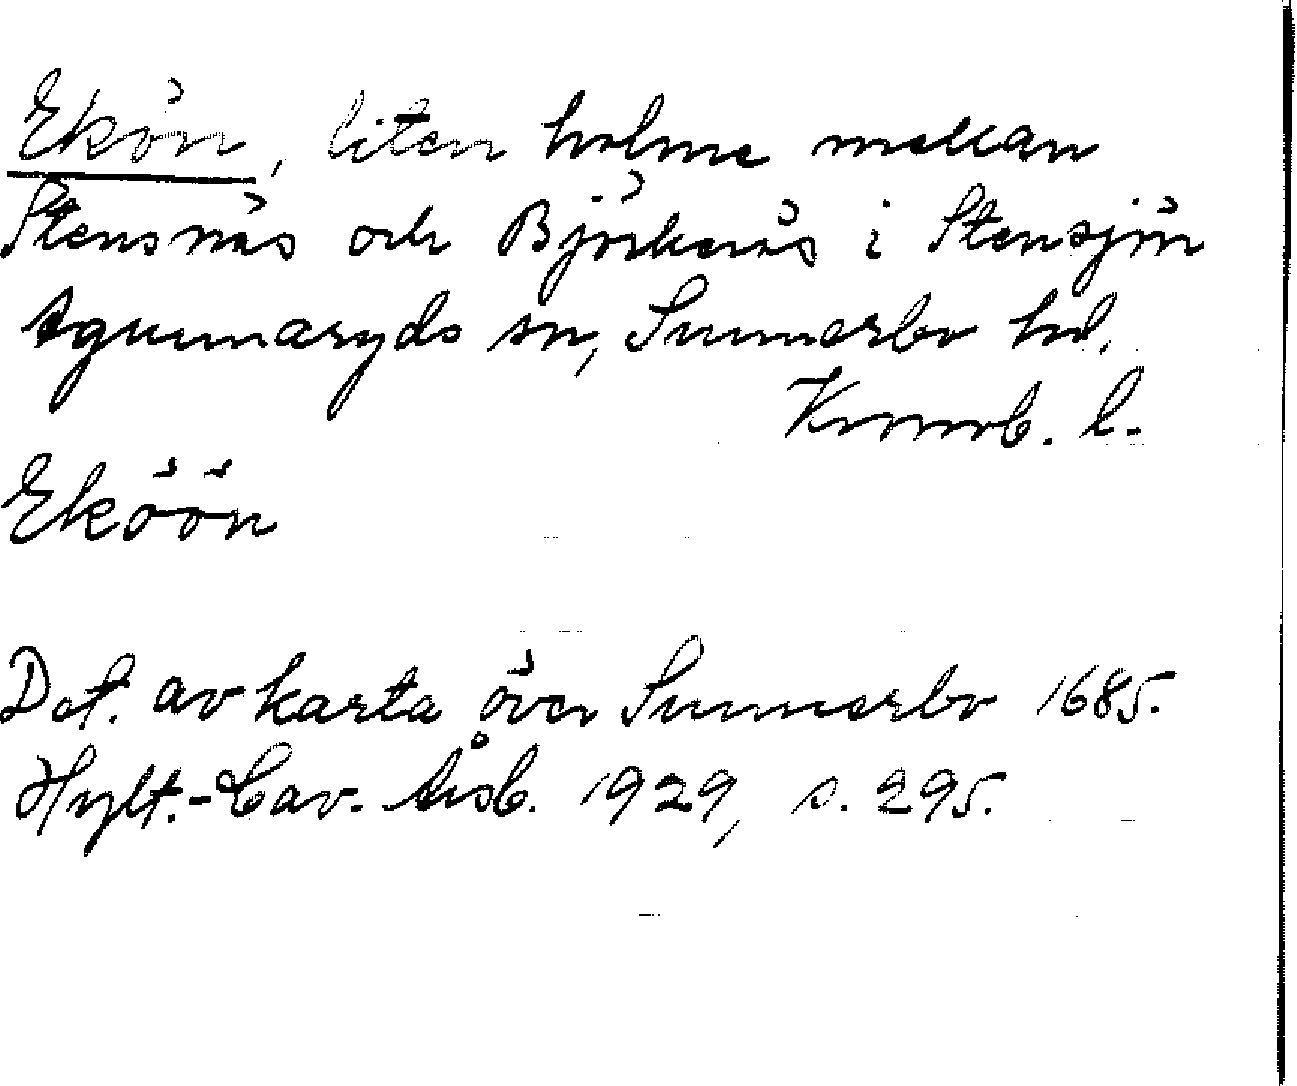 Ekön, liten holme mellan
Stensnäs och Björkenäs i Stensjön
Agunnaryds sn, Sunnerbo hd.
Kronob. l.
Eköön
Det. av karta över Sunnerbo 1685.
Hylt.-Cav. Årsb. 1929, s. 295.